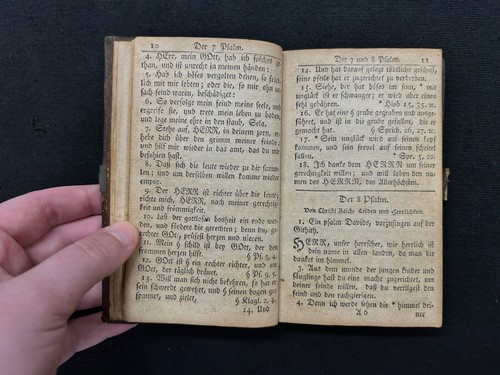 10 Der 7 Psalm.
4. HErr, mein GOtt, hab ich solches ge-
than, und ist unrecht in meinen händen:
5. Hab ich böses vergolten denen, so fried-
lich mit mir lebten; oder die, so mir ohn ur-
sach feind waren, beschädiget:
6. So verfolge mein feind meine seele, und
ergreife sie, und trete mein leben zu boden,
und lege meine ehre in den staub, Sela.
7. Stehe auf, HERR, in deinem zorn, er-
hebe dich über den grimm meiner feinde,
und hilf mir wieder in das amt, das du mir
befohlen hast.
8. Daß sich die leute wieder zu dir samm-
len; und um derselben willen komme wieder
empor.
9. Der HERR ist richter über die leute;
richte mich, HERR, nach meiner gerechtig-
keit und frömmigkeit.
10. Laß der gottlosen bosheit ein ende wer-
den, und fördere die gerechten; denn du, ge-
rechter GOtt, prüfest herzen und nieren.
11. Mein § schild ist bey GOtt, der den
frommen herzen hilft. § Ps. 3, 4.
12. GOtt ist § ein rechter richter, und ein
GOtt, der täglich dräuet. § Ps. 9, 5.
13. Will man sich nicht bekehren, so hat er
sein schwerdt gewetzet, und § seinen bogen ge-
spannet, und zielet, § Klagl. 2, 4.
14. Und
Der 7 und 8 Psalm. 11
14. Und hat darauf gelegt tödtliche geschoß,
seine pfeile hat er zugerichtet zu verderben.
15. Siehe, der hat böses im sinn, * mit
unglück ist er schwanger; er wird aber einen
fehl gebähren. * Hiob 15, 35.
16. Er hat eine § grube gegraben und ausge-
führet, und ist in die grube gefallen, die er
gemacht hat. § Sprich. 26, 27.
17. * Sein unglück wird auf seinen kopf
kommen, und sein frevel auf seinen scheitel
fallen.
18. Ich danke dem HERRN um seiner
gerechtigkeit willen; und will loben den na-
men des HERRN, des Allerhöchsten.
Der 8 Psalm.
Von Christi Reich, Leiden und Herrlichkeit.
1. Ein psalm Davids, vorzusingen auf der
Githith.
HERR, unser herrscher, wie herrlich ist
dein name in allen landen, da man dir
danket im himmel.
3. Aus dem munde der jungen kinder und
säuglinge hast du eine macht zugerichtet, um
deiner feinde willen, daß du vertilgest den
feind und den rachgierigen.
4. Denn ich werde sehen die * himmel dei-
A 6 ner